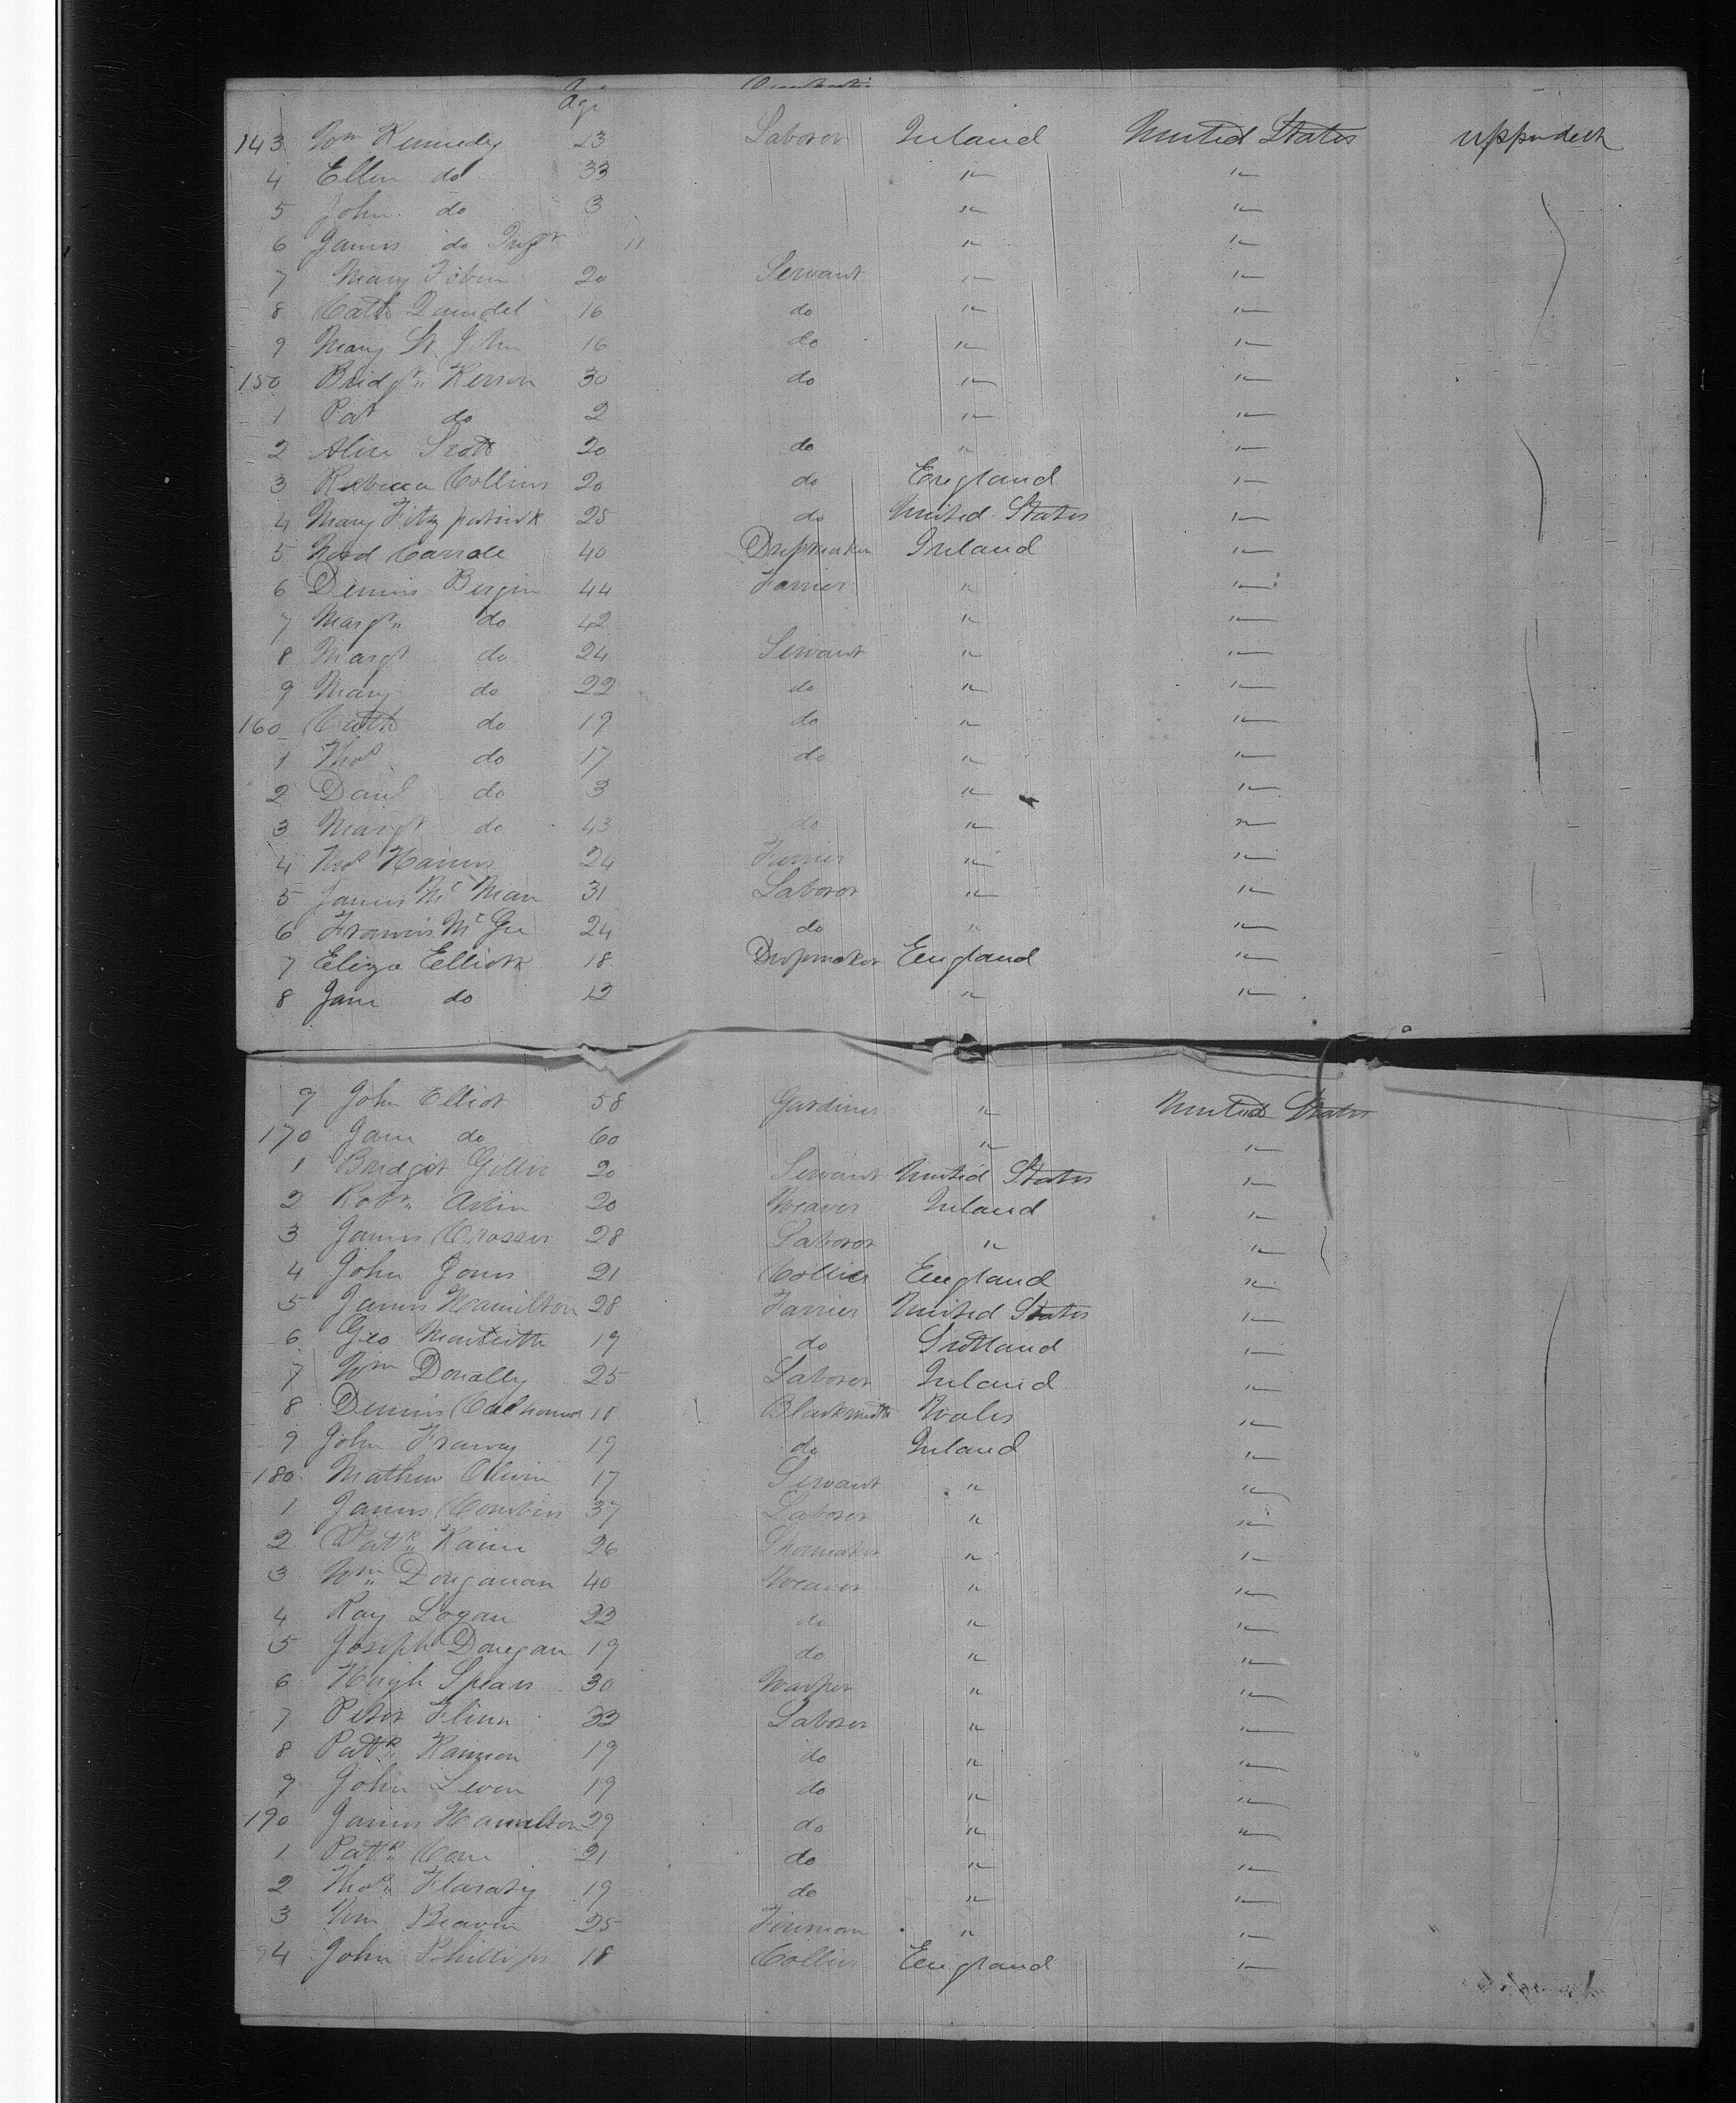 Age
143 Wm Kennedy 23 Laborer Ireland United States upper deck
4 Ellen do 33 " "
5 John do 3 " "
6 James do Inft 11 " "
7 Mary Tobin 20 Servant " "
8 Cath 16 do " "
9 Mary St. John 16 do " "
150 Bridgt. 30 do " "
1 Pat do 2 " "
2 Alice Scott 20 do " "
3 Rebecca Collins 20 do England "
4 Mary Fitzpatrick 25 do United States "
5 Carrole 40 Dressmaker Ireland "
6 Dennis Bergin 44 Farrier " "
7 Margt. do 42 " "
8 Margt do 24 Servant " "
9 Mary do 22 do " "
160 Cath do 19 do " "
1 Thos do 17 do " "
2 Danl do 3 " "
3 Margt do 43 do " "
4 Thos 24 Farrier " "
5 James McMan 31 Laborer " "
6 Francis McGee 24 do " "
7 Eliza Elliott 18 Dressmaker England "
8 Jane do 12 " "
9 John Elliot 58 Gardiner " United States
170 Jane do 60 " "
1 Bridget 20 Servant United States "
2 Robt. 20 Weaver Ireland "
3 James 28 Laborer " "
4 John Jones 21 Collier England "
5 James Hamilton 28 Farrier United States "
6 Geo Monteith 19 do Scotland "
7 Wm Donally 25 Laborer Ireland "
8 Dennis 18 Blacksmith Wales "
9 John 19 do Ireland "
180 Mathew 17 Servant " "
1 James 37 Laborer " "
2 Patk. 26 Shoemaker " "
3 Wm. 40 Weaver " "
4 Ray Logan 22 do " "
5 Joseph Donegan 19 do " "
6 Hugh Spears 30 " "
7 Peter Flinn 33 Laborer " "
8 Patk. 19 do " "
9 John 19 do " "
190 James Hamilton 29 do " "
1 Patk. 21 do " "
2 Thos. Flaraty 19 do " "
3 Wm 25 Fireman " "
94 John Phillips 18 Collier England "